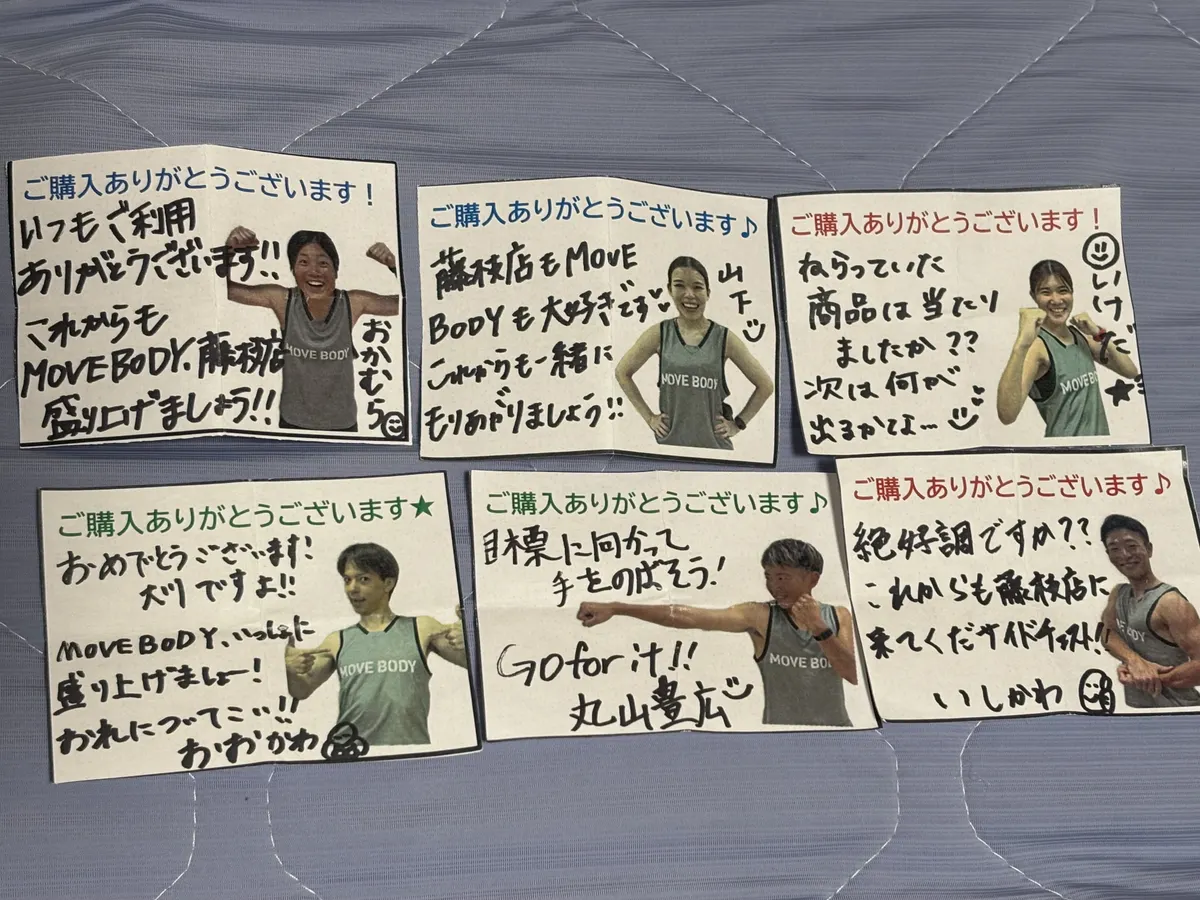 ご購入ありがとうございます！
いつもご利用
ありがとうございます!!
これからも
MOVE BODY.藤枝店
盛り上げましょう!!
おかむら
MOVE BODY
ご購入ありがとうございます♪
藤枝店もMOVE
BODYも大好きです
これからも一緒に
もりあがりましょう!!
山下
MOVE BODY
ご購入ありがとうございます！
ねらっていた
商品は当たり
ましたか??
次は何が
出るかなぁ…
いけだ
★
MOVE B
ご購入ありがとうございます★
おめでとうございます!
大川ですよ!!
MOVE BODY、いっしょに
盛り上げましょー!
おれについてこい!!
おおかわ
MOVE BODY
ご購入ありがとうございます♪
目標に向かって
手をのばそう!
Go for it!!
丸山豊広
MOVE BO
ご購入ありがとうございます♪
絶好調ですか??
これからも藤枝店に
来てくださイドチェスト!!
いしかわ
BODY